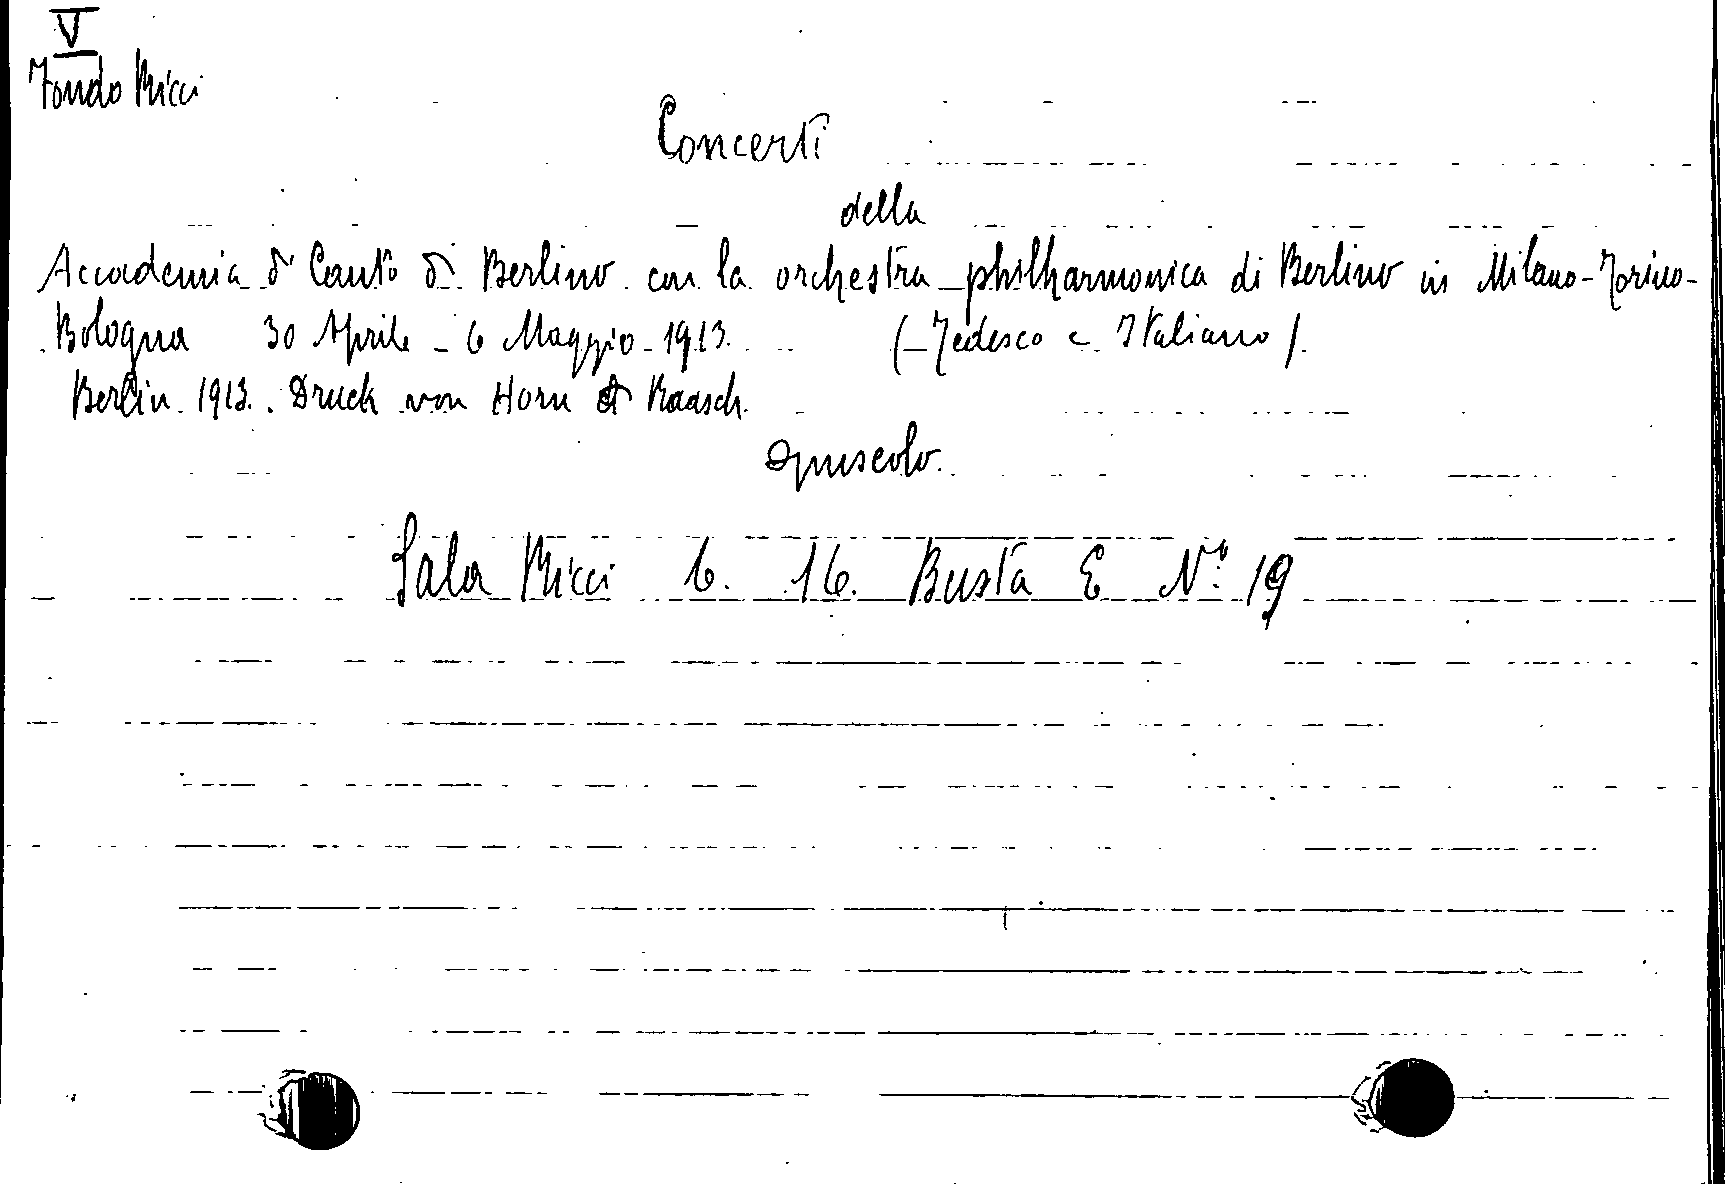 V
Fondo Ricci
Concerti
della
Accademia di Canto di Berlino con la orchestra philharmonica di Berlino in Milano-Torino-
Bologna 30 Aprile - 6 Maggio 1913. (Tedesco e Italiano).
Berlin 1913. Druck von Horn & Raasch.
Opuscolo.
Sala Ricci 6. 16. Busta E Nº 19